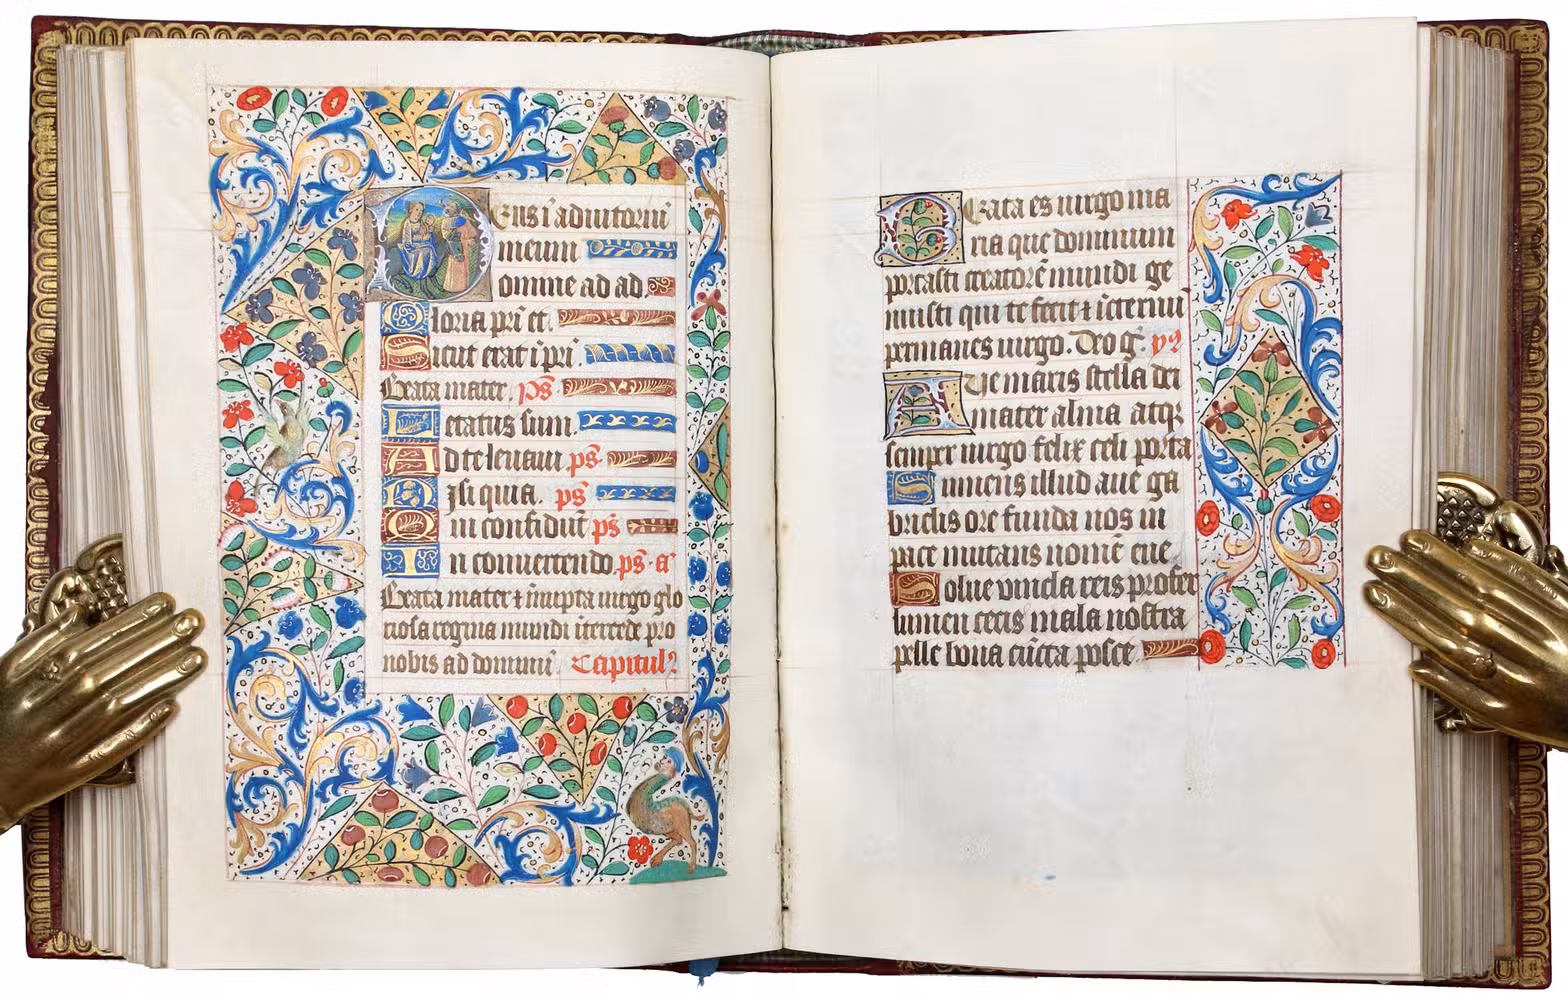 Eus ī adiutoriū
meum
omine ad ad
Gloria pri et.
Sicut erat ī pri
Beata mater. ps̄
Letatus sum.
Ad te leuaui ps̄
Nisi quia. ps̄
Qui confidūt ps̄
In conuertendo. ps̄. a
Beata mater ⁊ inupta uirgo glo
riosa regina mundi ītercede pro
nobis ad dominū Capitul
Beata es uirgo ma
ria que dominum
portasti creatorē mundi ge
nuisti qui te fecit ⁊ ī eternū
permanes uirgo. Deo g̅
Aue maris stella dei
mater alma atq
semper uirgo felix celi porta
Sumens illud aue ga
brielis ore funda nos in
pace mutans nomē eue
Solue vincla reis profer
lumen cecis mala nostra
pelle bona cūcta posce